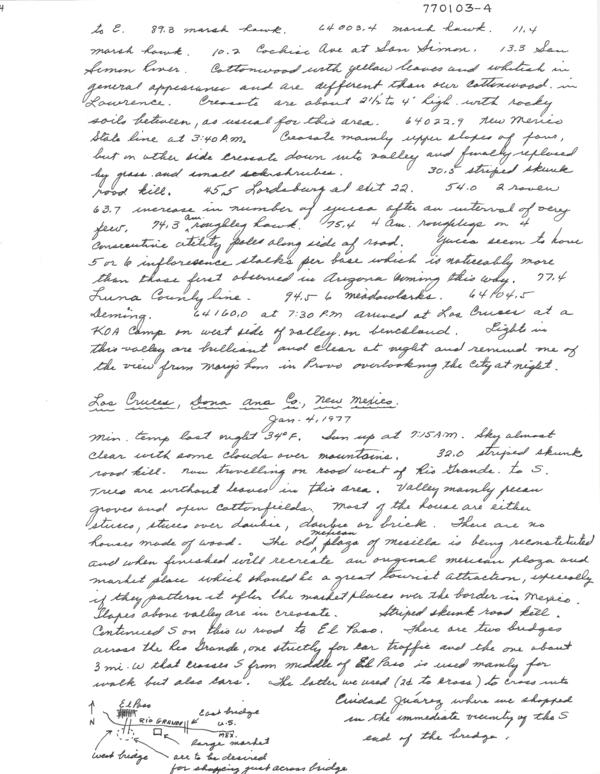 770103-4
to E. 89.3 marsh hawk. 64003.4 marsh hawk. 11.4
marsh hawk. 10.2 Cochise Ave at San Simon. 13.3 San
Simon River. Cottonwood with yellow leaves and whitish in
general appearance and are different than our cottonwood in
Lawrence. Creosote are about 2½ to 4' high with rocky
soils between, as usual for this area. 64022.9 New Mexico
State line at 3:40 P.M. Creosote mainly upper slopes of fans,
but on other side creosote down into valley and finally replaced
by grass and small shrubs. 30.5 striped skunk
road kill. 45.5 Lordsburg at exit 22. 54.0 2 raven
63.7 increase in number of yucca after an interval of very
few. 74.3 am. roughleg hawk. 75.4 4 Am. roughlegs on 4
consecutive utility poles along side of road. Yucca seem to have
5 or 6 inflorescence stalks per base which is noticeably more
than those first observed in Arizona coming this way. 77.4
Luna County line. 94.5 6 meadowlarks. 64104.5
Deming. 64160.0 at 7:30 P.M. arrived at Las Cruces at a
KOA Camp on west side of valley on benchland. Lights in
this valley are brilliant and clear at night and remind me of
the view from in Provo overlooking the city at night.
Las Cruces, Dona Ana Co., New Mexico.
Jan. 4, 1977
Min. temp last night 34°F. Sun up at 7:15 A.M. Sky almost
clear with some clouds over mountains. 32.0 striped skunk
road kill. Now travelling on road west of Rio Grande to S.
Trees are without leaves in this area. Valley mainly pecan
groves and open cottonfields. Most of the house are either
stucco, stucco over daubie, daubie or brick. There are no
houses made of wood. The old mexican plaza of Mesilla is being reconstituted
and when finished will recreate an original mexican plaza and
market place which should be a great tourist attraction, especially
if they pattern it after the market places over the border in Mexico.
Slopes above valley are in creosote. Striped skunk road kill.
Continued S on this W road to El Paso. There are two bridges
across the Rio Grande, one strictly for car traffic and the one about
3 mi. W that crosses S from middle of El Paso is used mainly for
walk but also cars. The latter we used (2¢ to cross) to cross into
Cuidad Juárez where we shopped
in the immediate vicinity of the S
end of the bridge.
El Paso
N
East bridge
RIO GRANDE
U.S.
MEX.
west bridge
large market
all to be desired
for shopping just across bridge